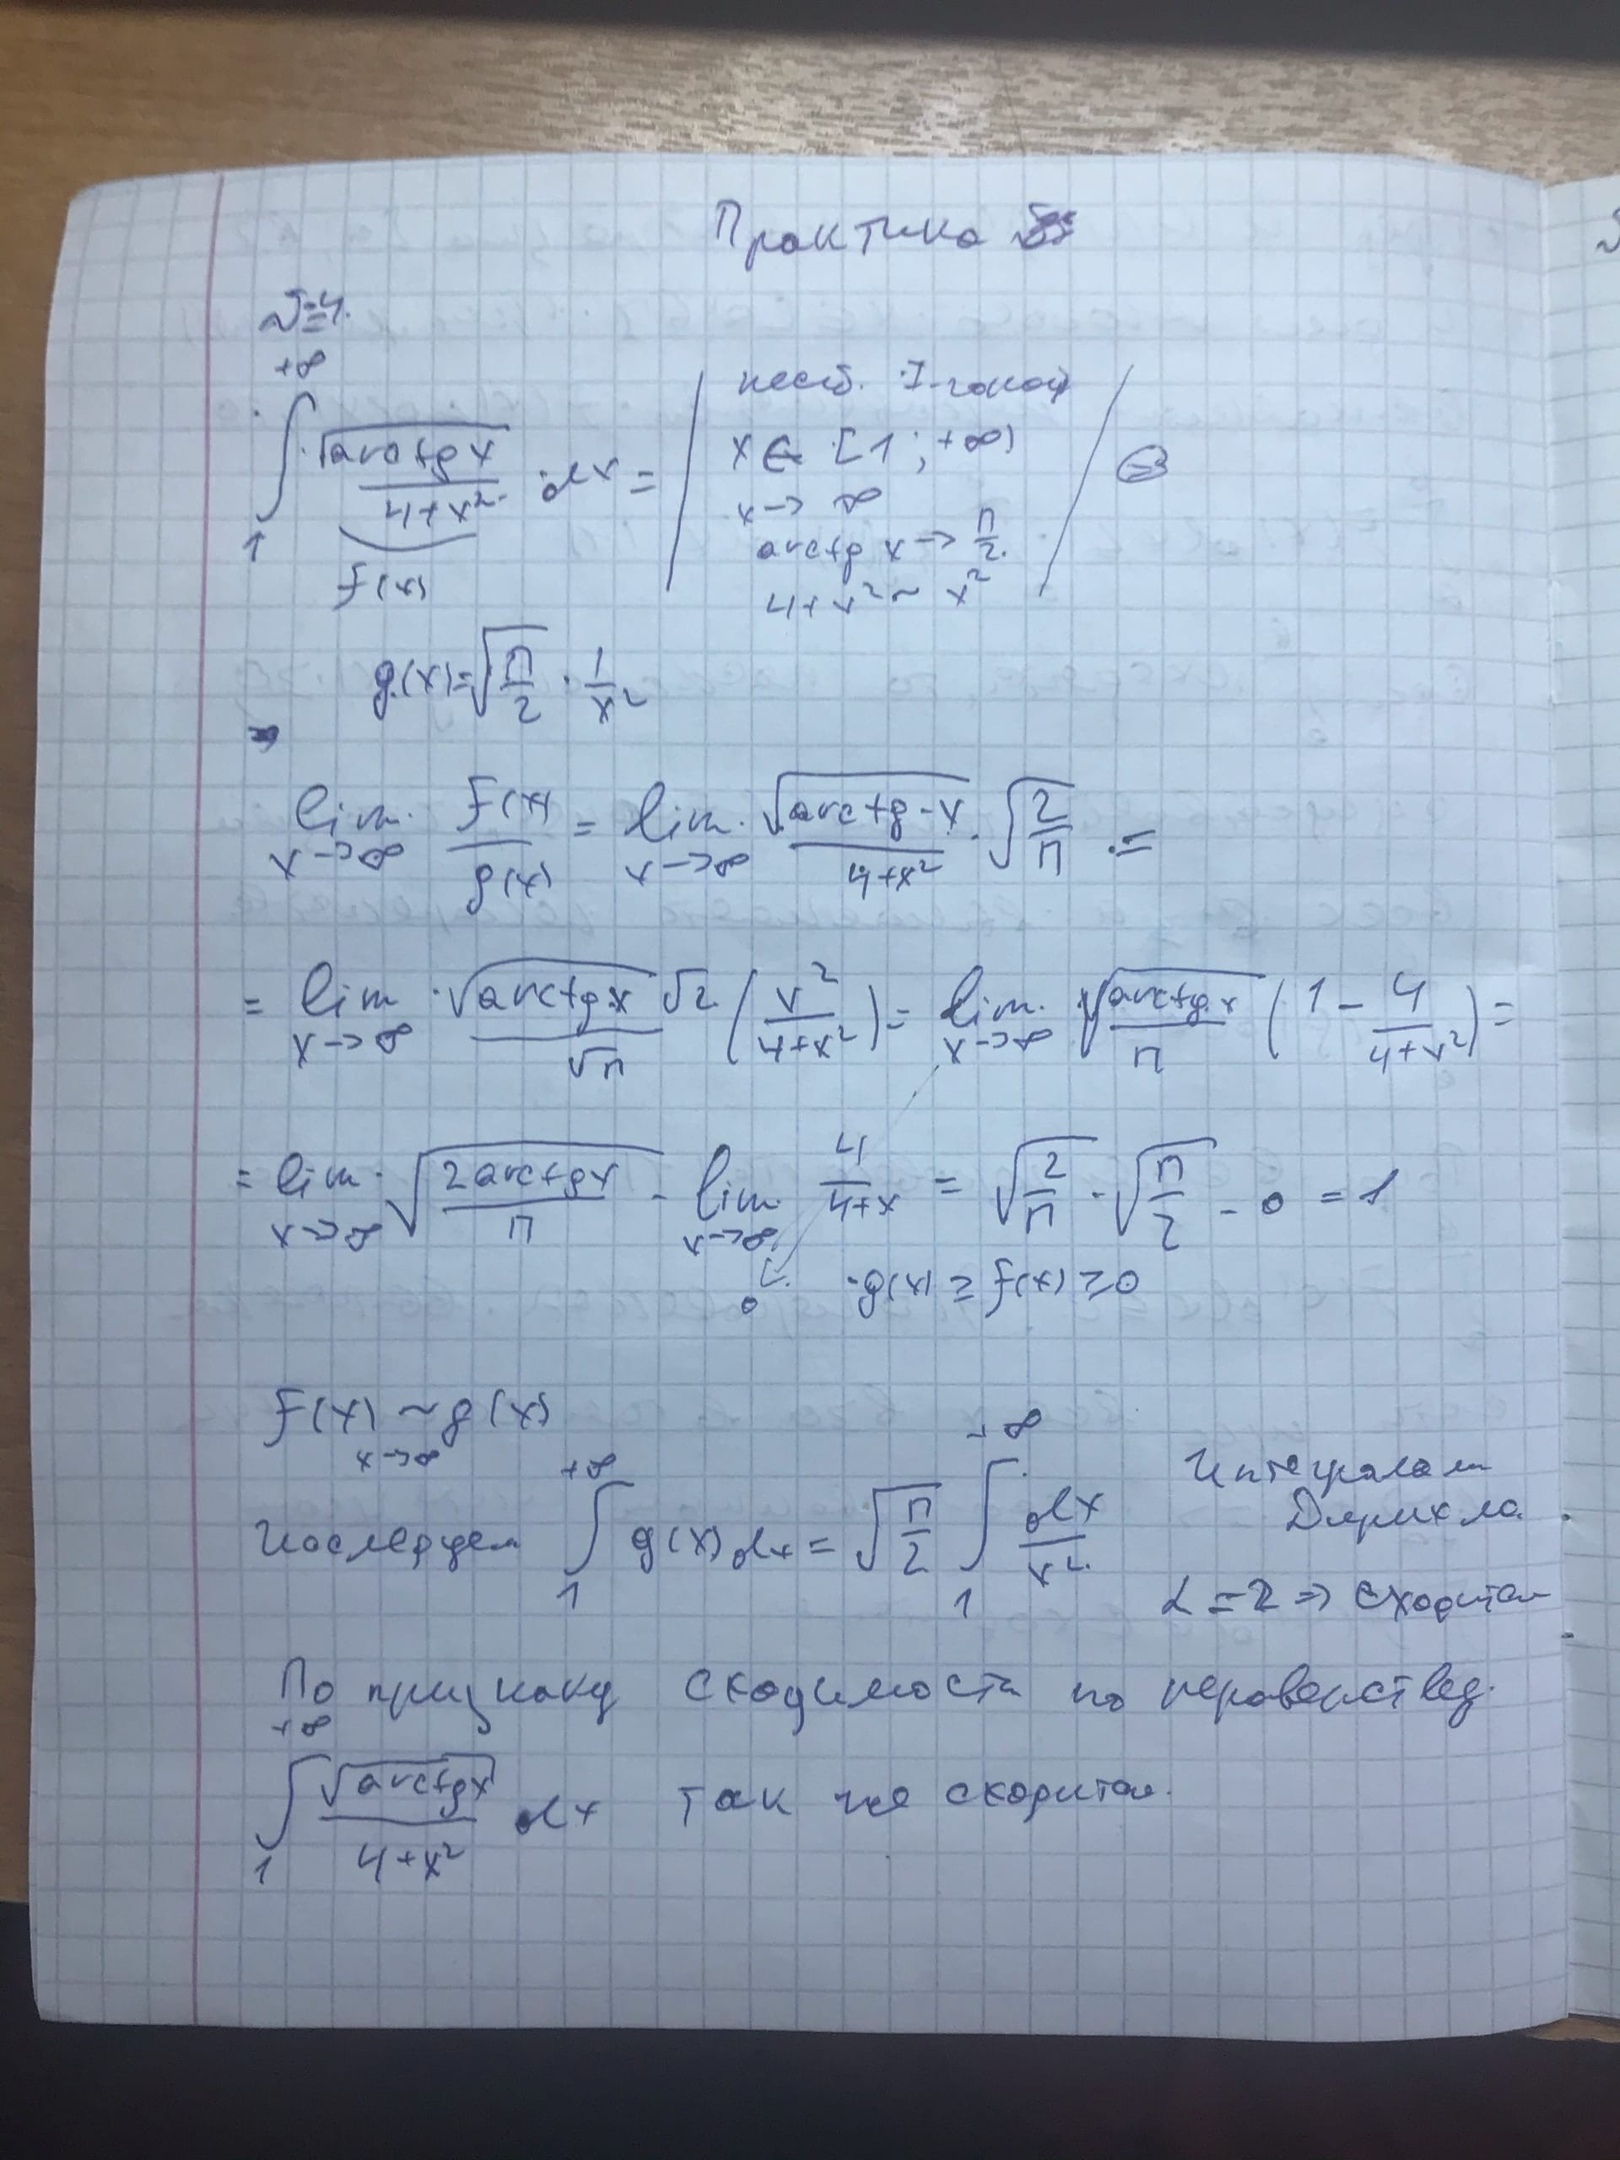 Практика
№4.
+∞
∫ √arctg x / 4+x² dx = | необ. I-го рода
1
f(x)
x ∈ [1; +∞)
x → ∞
arctg x → π/2.
4+x² ~ x²
g(x) = √π/2 · 1/x²
lim x→∞ f(x)/g(x) = lim x→∞ √arctg x / 4+x² · √2/π =
= lim x→∞ √arctg x √2 / √π (x² / 4+x²) = lim x→∞ √arctg x / π (1 - 4 / 4+x²) =
= lim x→∞ √2arctg x / π - lim x→∞ 4 / 4+x = √2/π · √π/2 - 0 = 1
0 g(x) ≥ f(x) ≥ 0
f(x) ~ g(x)
x→∞
Исследуем ∫₁^+∞ g(x)dx = √π/2 ∫₁^+∞ dx/x²
Интеграл
Дирихле
α = 2 ⇒ сходится
По признаку сходимости по неравенству
∫₁^+∞ √arctg x / 4+x² dx так же сходится.